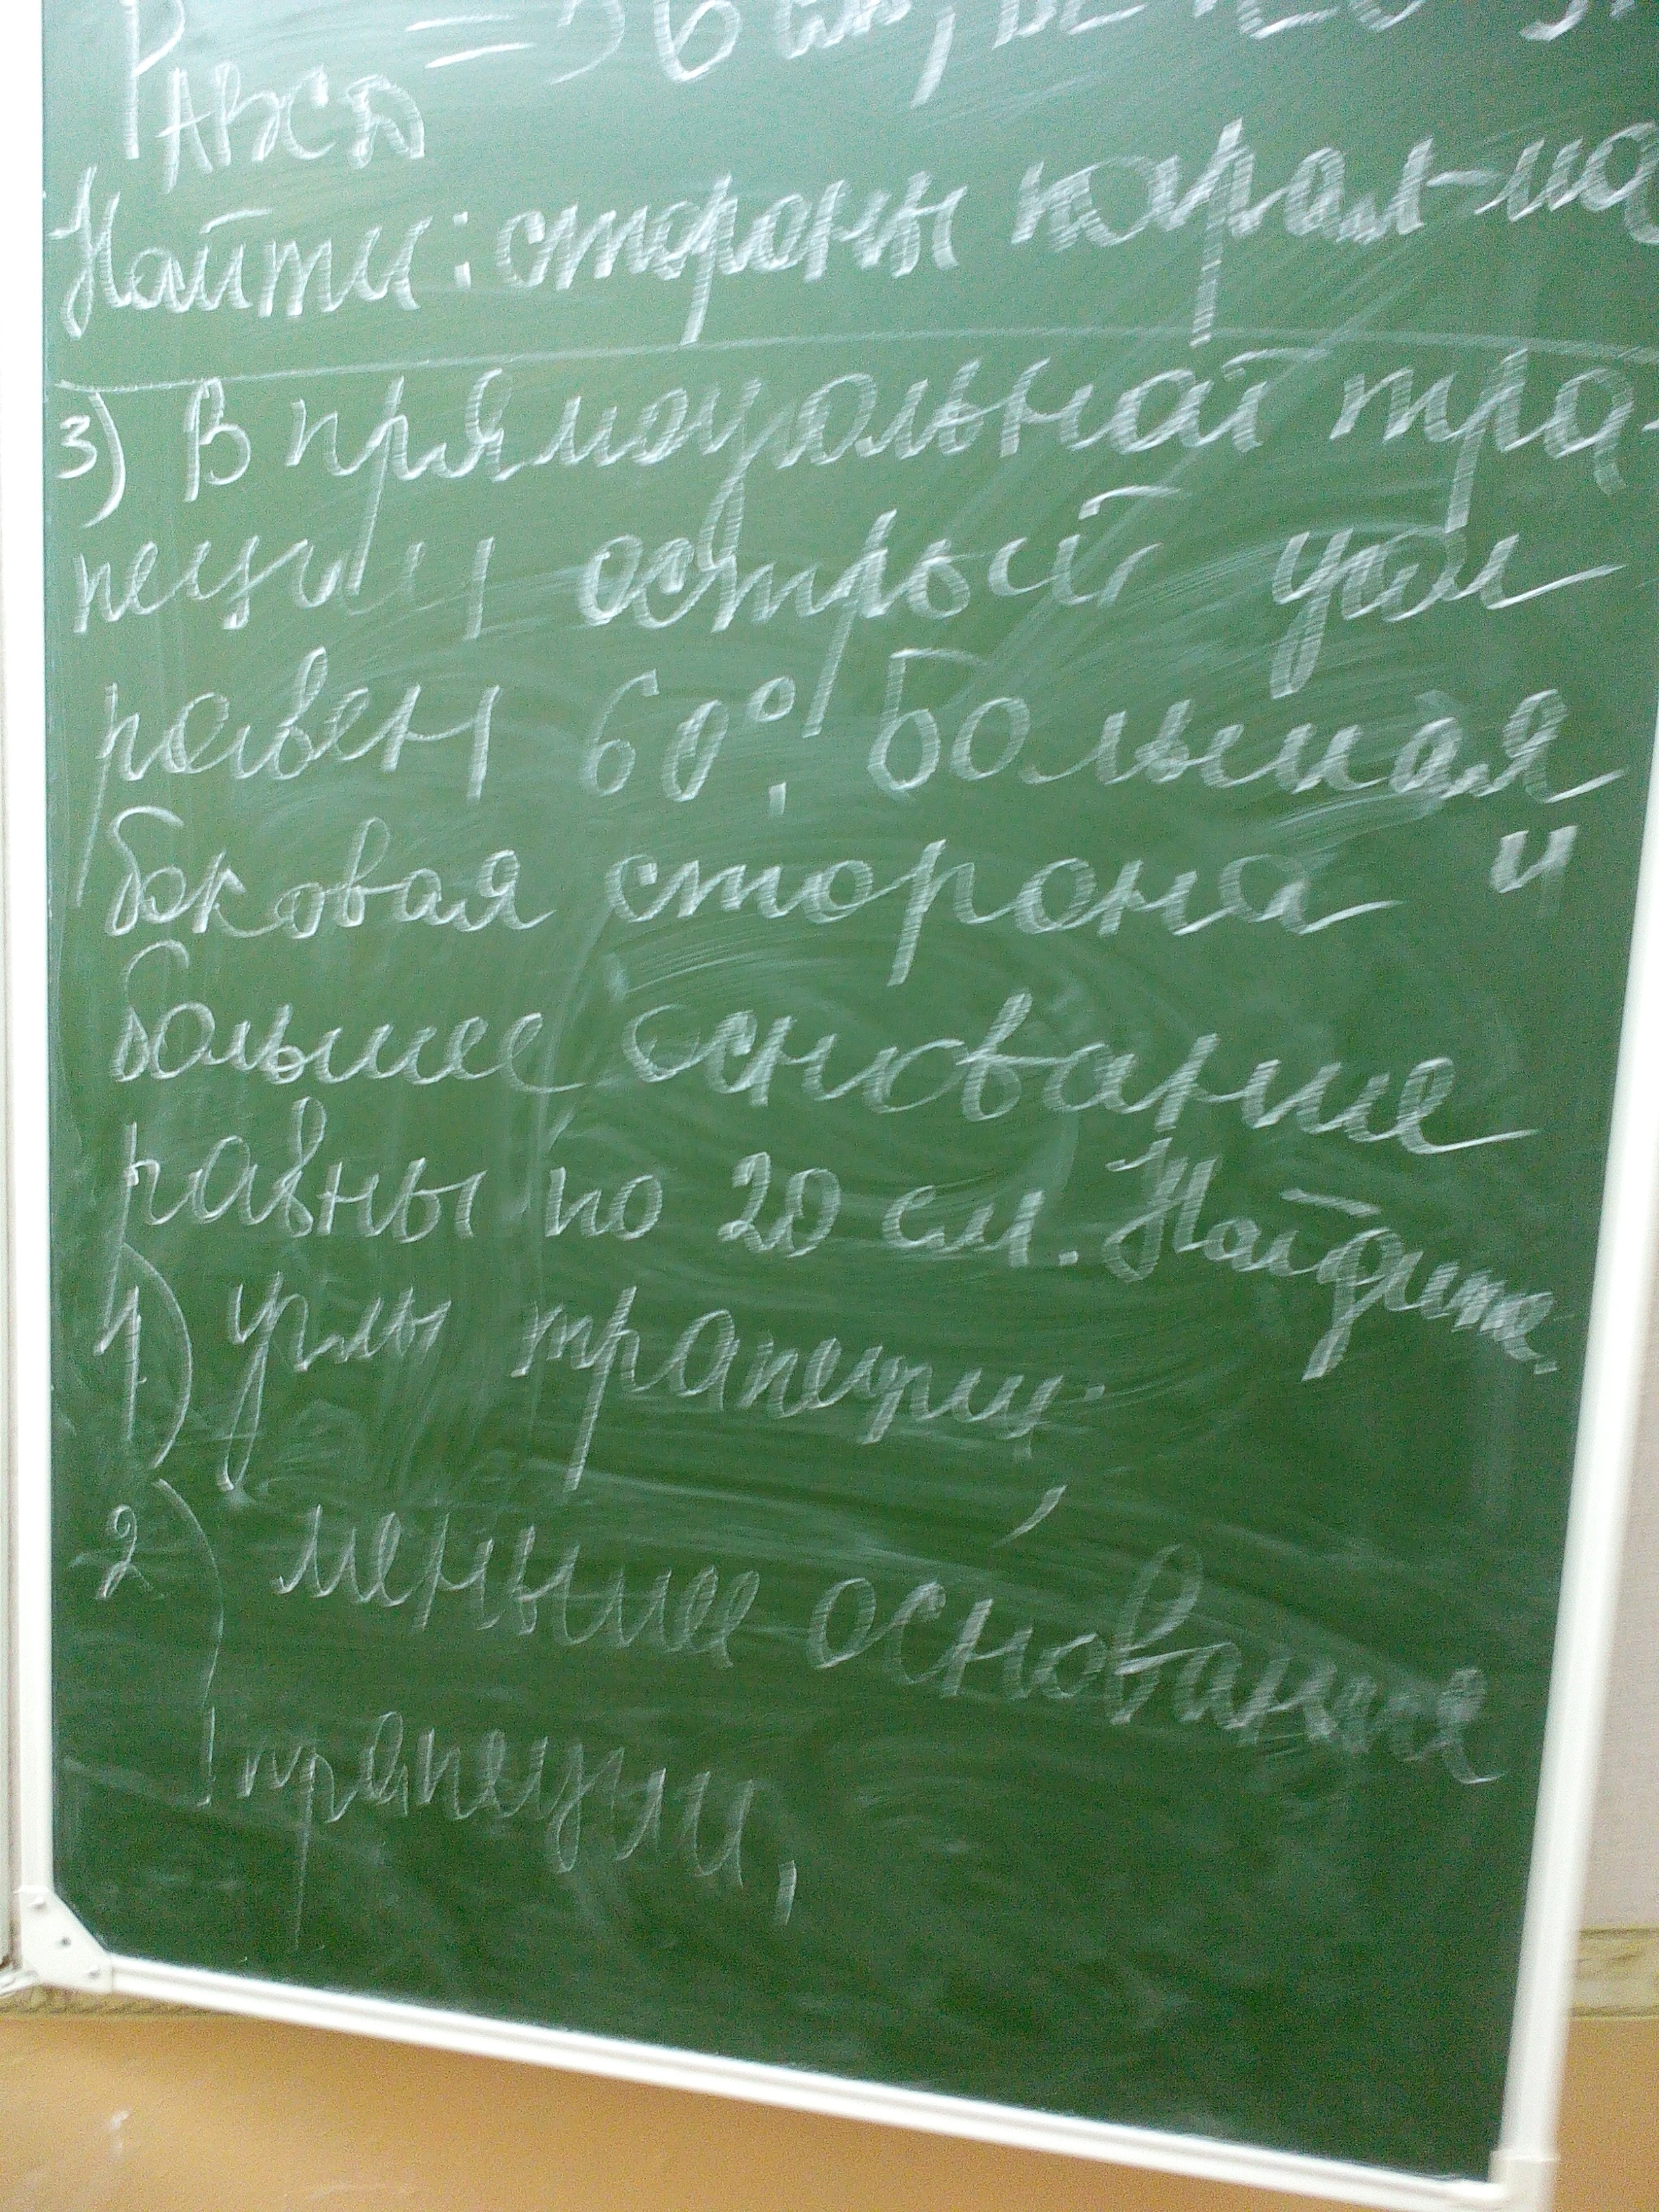 P ABCD = 36 см,
Найти: стороны парал-ма
3) В прямоугольной тра-
пеции острый угол
равен 60°. Большая
боковая сторона и
большее основание
равны по 20 см. Найдите:
1) углы трапеции;
2) меньшее основание
трапеции,